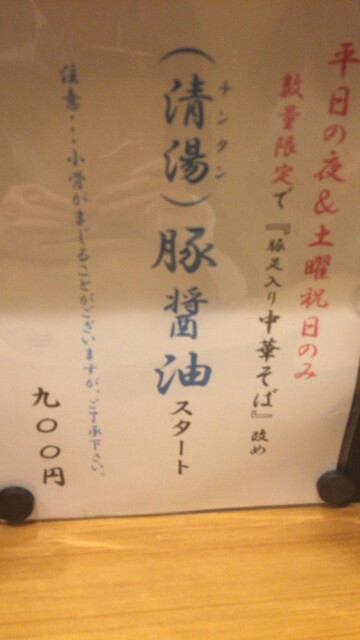 平日の夜&土曜祝日のみ
数量限定で『豚足入り中華そば』改め
(清湯)豚醤油スタート
チンタン
注意・・・小骨がまじることがございますが、ご了承下さい。
九〇〇円